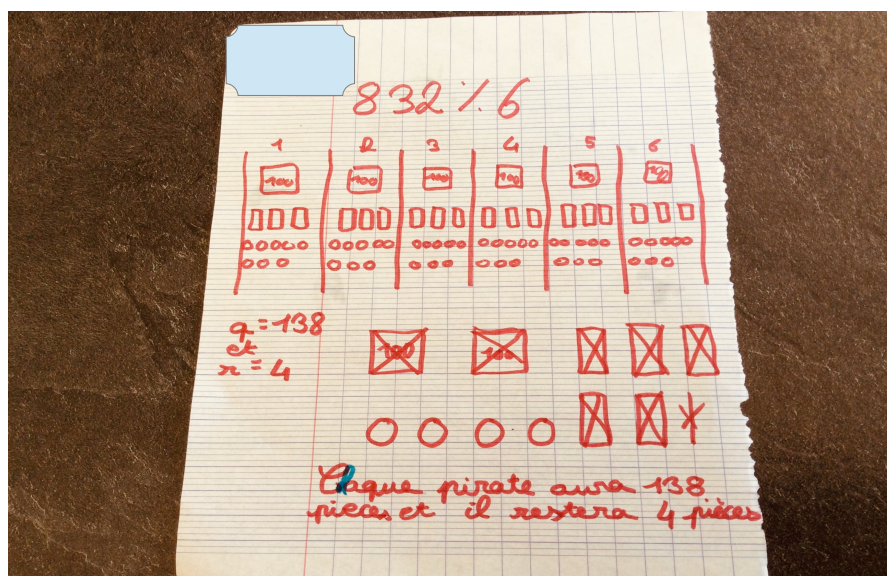 832 ÷ 6
1 2 3 4 5 6
100 100 100 100 100 100
q = 138
et
r = 4
100 100
Chaque pirate aura 138
pieces et il restera 4 pièces